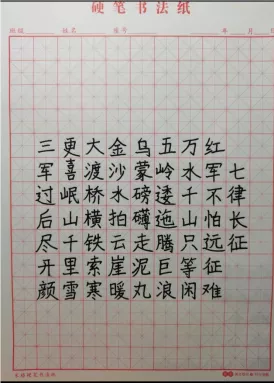 硬笔书法纸
班级 姓名 座号 年 月 日
七律长征
红军不怕远征难
万水千山只等闲
五岭逶迤腾巨浪
乌蒙磅礴走泥丸
金沙水拍云崖暖
大渡桥横铁索寒
更喜岷山千里雪
三军过后尽开颜